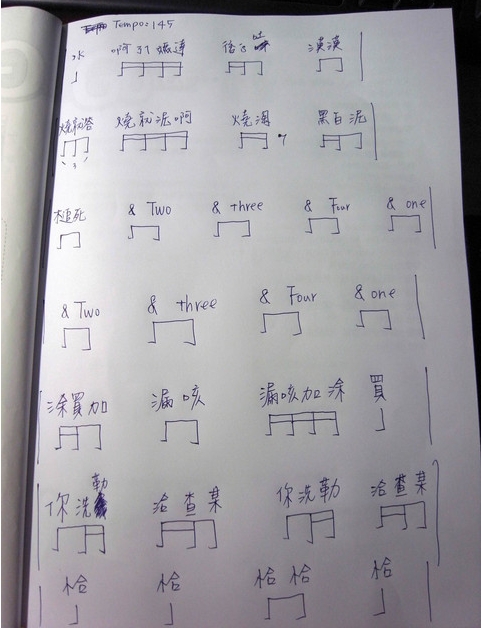 Tempo: 145
水 啊 連 漢漢
燒就溶 燒就泥啊 燒淘 黑白泥
3
死 & Two & three & Four & one
& Two & three & Four & one
涂買加 漏咳 漏咳加涂 買
你洗勒 洽查某 你洗勒 洽查某
恰 恰 恰恰 恰